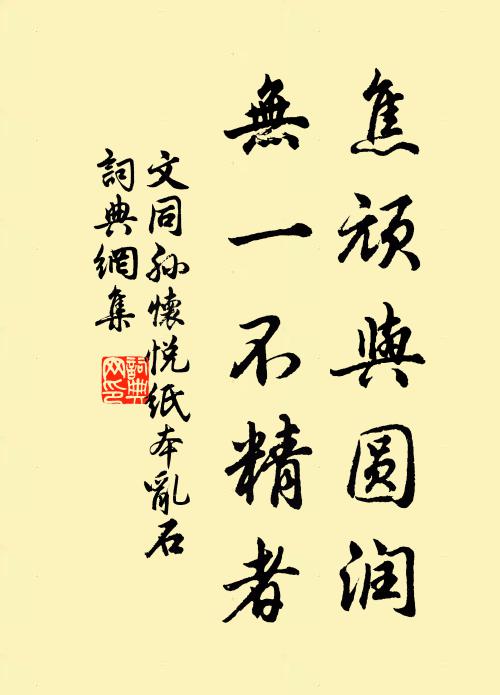 焦頑與圆润
無一不精者
文同孙懷悅紙本亂石
詞典網集
詞典網印